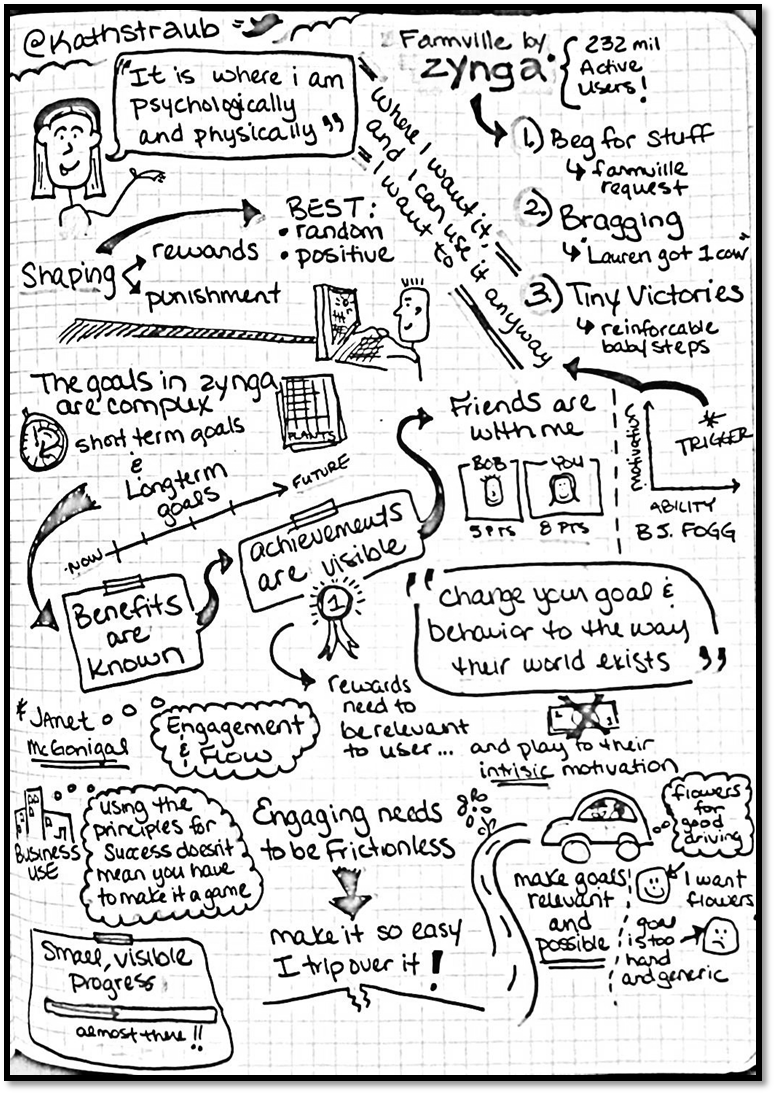 @Kathstraub
"It is where i am
psychologically
and physically"
Farmville by
zynga
232 mil
Active
users!
where I want it,
and I can use it anyway
I want to
1. Beg for stuff
farmville
request
2. Bragging
"Lauren got 1 cow"
3. Tiny Victories
reinforcable
baby steps
Shaping
rewards
punishment
BEST:
• random
• positive
The goals in zynga
are complex
short term goals
&
Longterm
goals
PLANTS
NOW
FUTURE
Benefits
are
known
achievements
are visible
1
Friends are
with me
BOB
YOU
5 PTS
8 PTS
MOTIVATION
TRIGGER
ABILITY
BJ. FOGG
"change your goal &
behavior to the way
their world exists"
rewards
need to
be relevant
to user...
and play to their
intrisic motivation
* JANET
McGonigal
Engagement
& Flow
BUSINESS
USE
using the
principles for
success doesn't
mean you have
to make it a game
Engaging needs
to be Frictionless
make it so easy
I trip over it!
flowers
for
good
driving
make goals
relevant
and
possible
I want
flowers
goal
is too
hard
and generic
Small, visible
progress
almost there!!